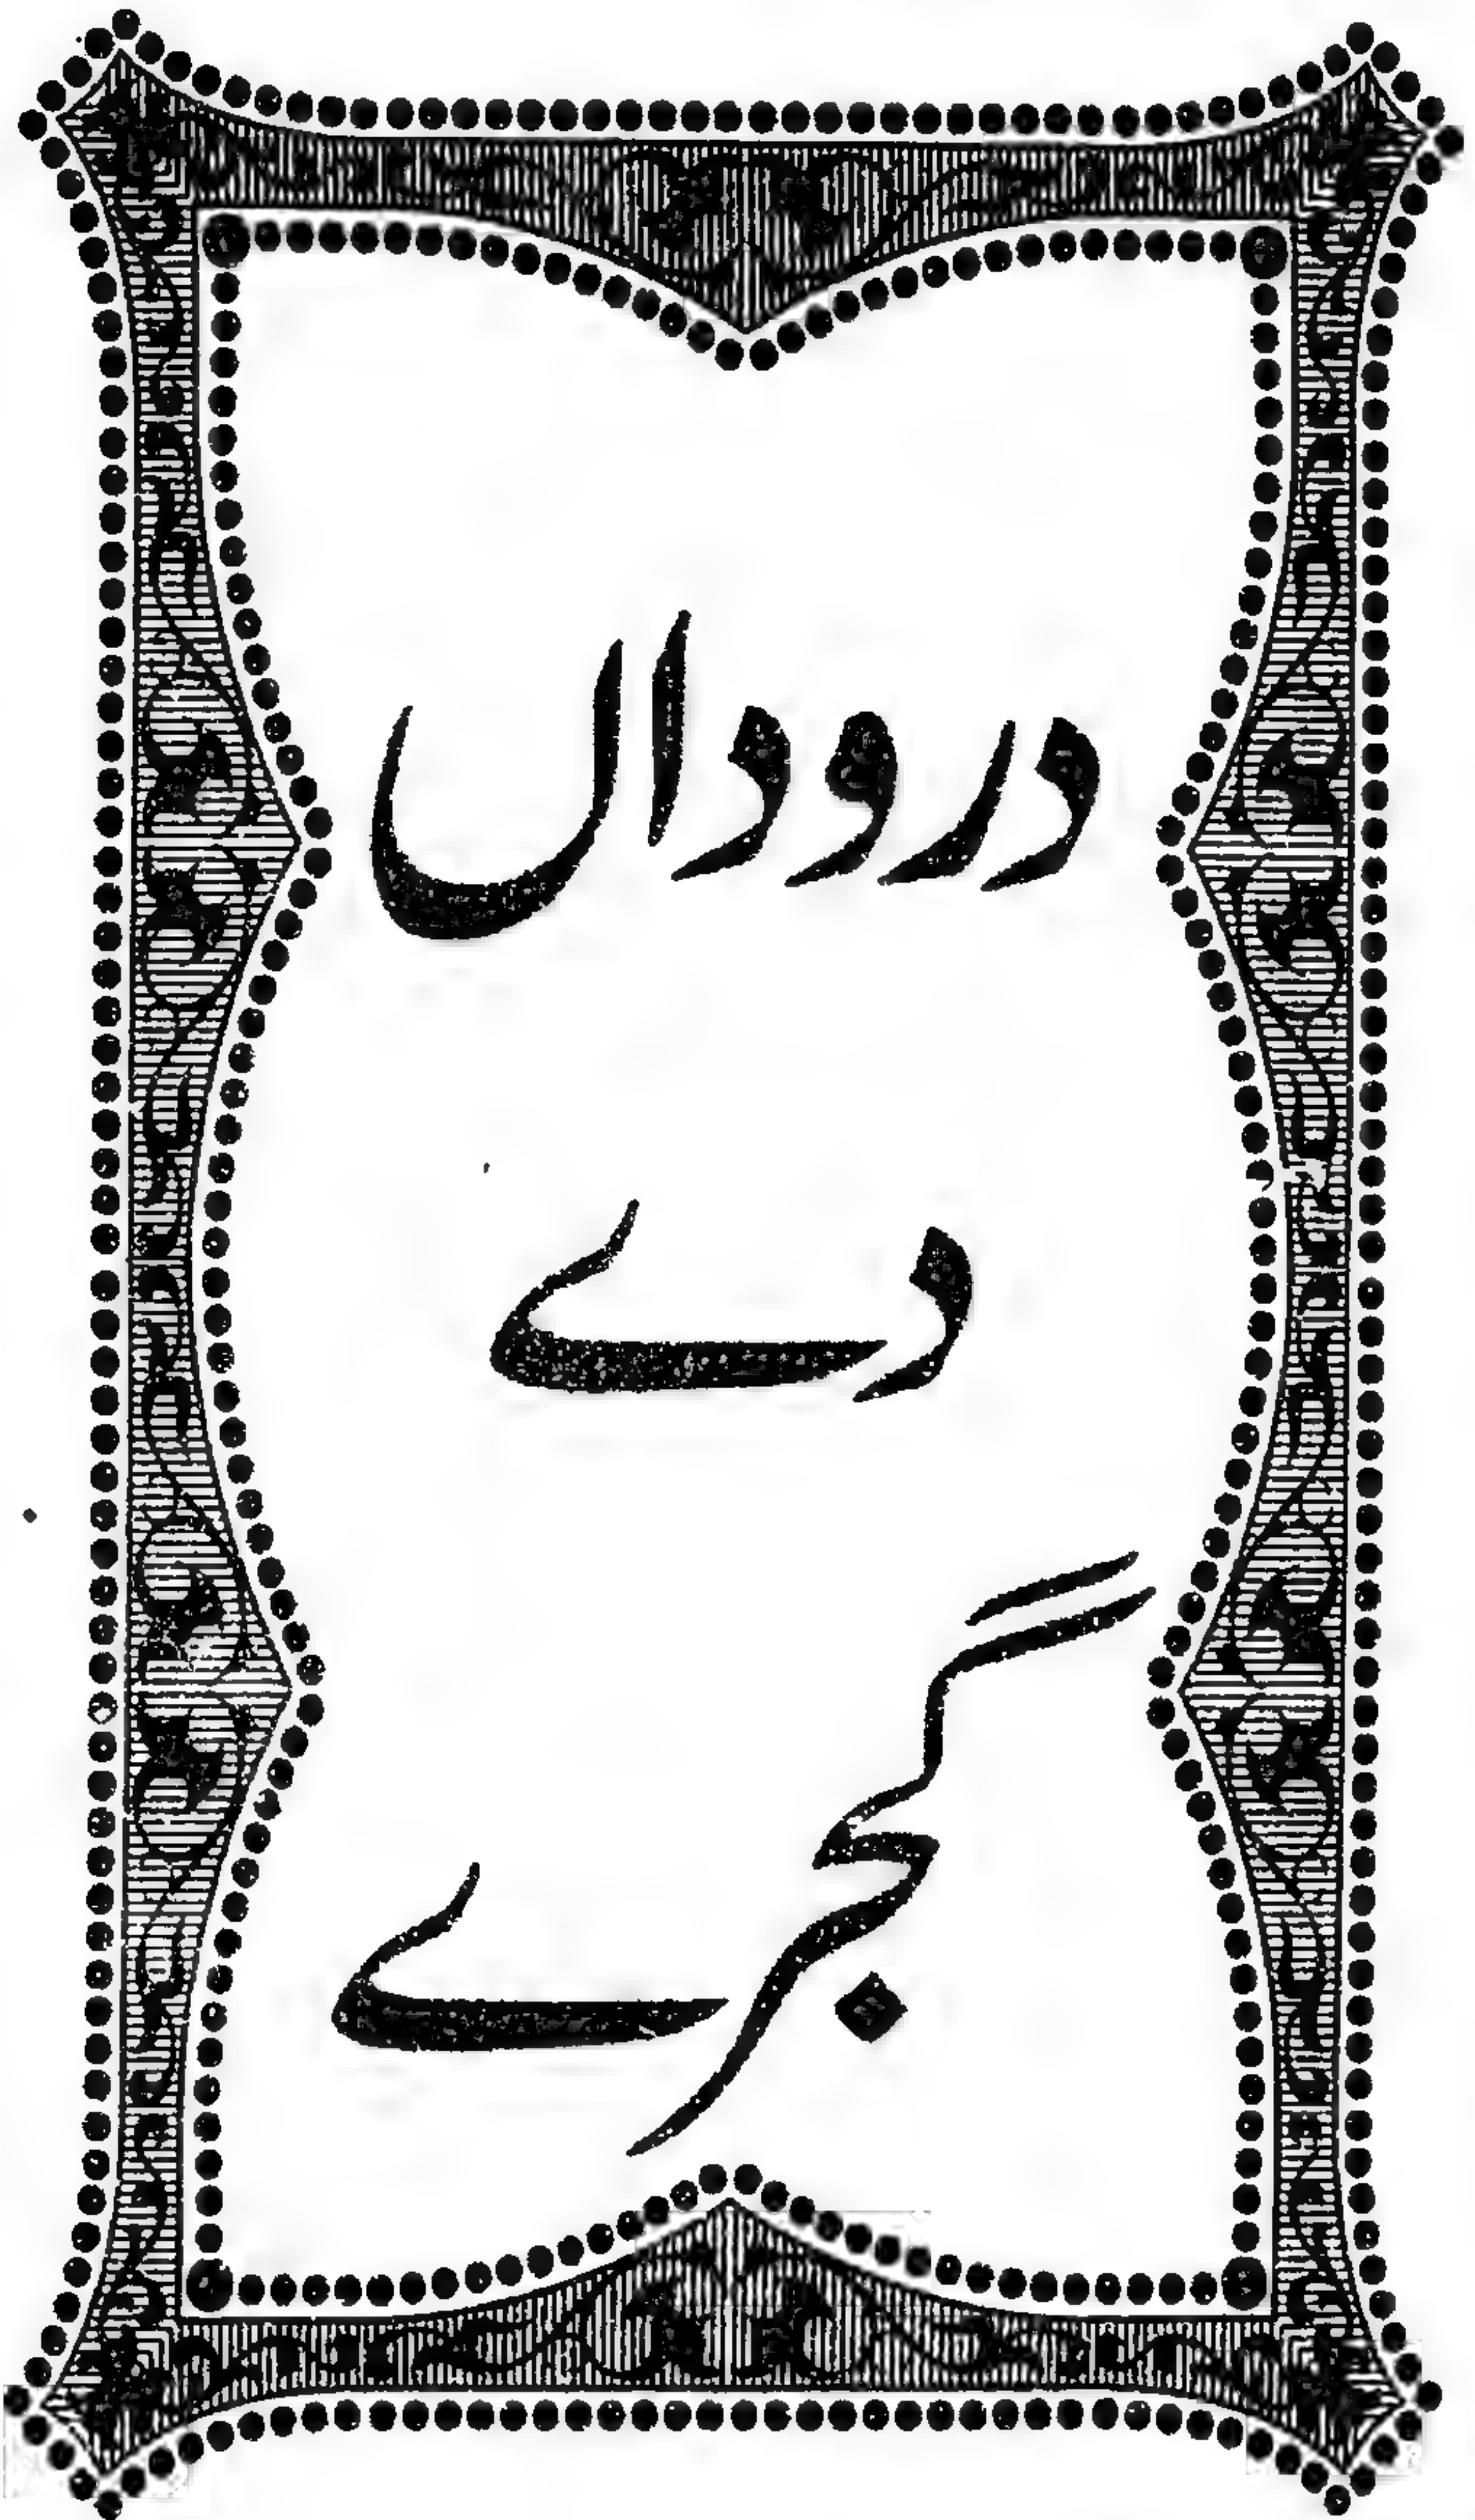 دروداں
دے
گجرے